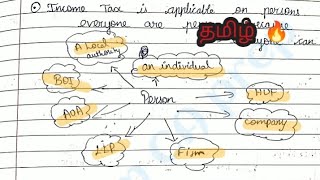 Income Tax is applicable on persons
everyone are
தமிழ்
can
A Local authority
an individual
BOI
HUF
Person
AOA
Company
LLP
Firm